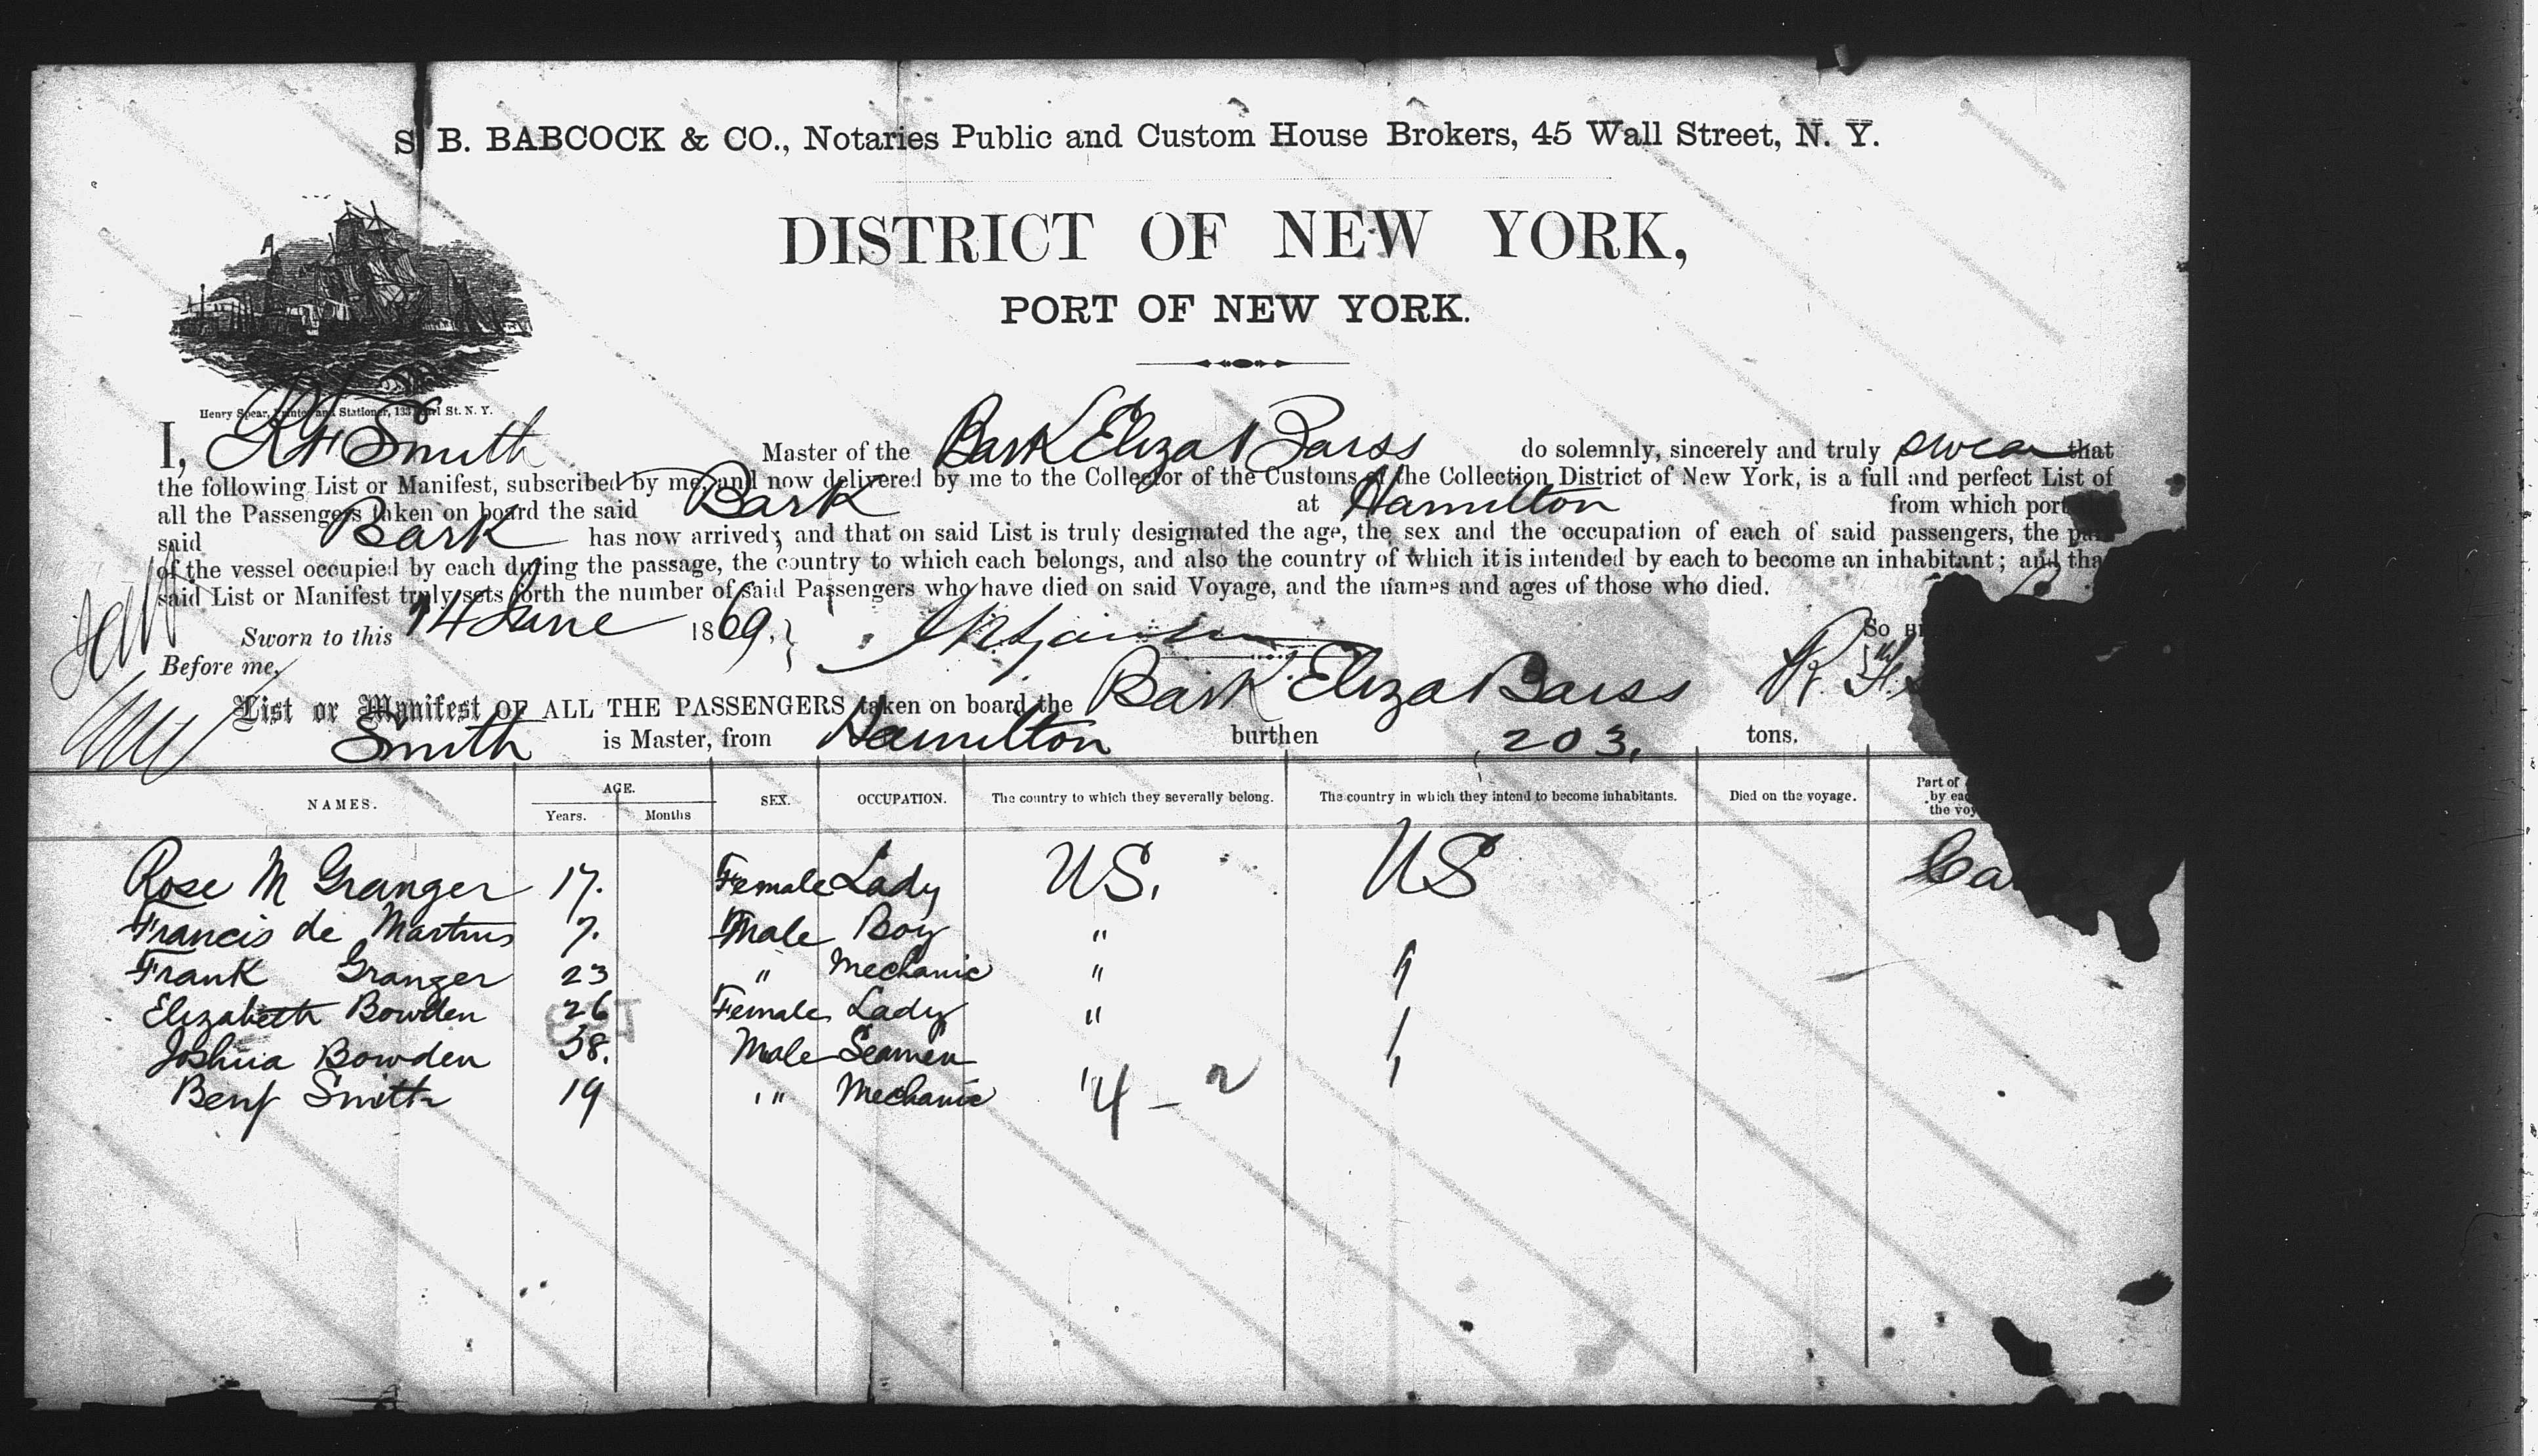 S. B. BABCOCK & CO., Notaries Public and Custom House Brokers, 45 Wall Street, N. Y.
DISTRICT OF NEW YORK,
PORT OF NEW YORK.
Henry Spear, Printer and Stationer, 133 Pearl St. N. Y.
I, R H Smith Master of the Bark Eliza Barss do solemnly, sincerely and truly swear that
the following List or Manifest, subscribed by me, and now delivered by me to the Collector of the Customs of the Collection District of New York, is a full and perfect List of
all the Passengers taken on board the said Bark at Hamilton from which port
said Bark has now arrived; and that on said List is truly designated the age, the sex and the occupation of each of said passengers, the part
of the vessel occupied by each during the passage, the country to which each belongs, and also the country of which it is intended by each to become an inhabitant; and that
said List or Manifest truly sets forth the number of said Passengers who have died on said Voyage, and the names and ages of those who died.
Sworn to this 14 June 1869. So
Before me,
List or Manifest OF ALL THE PASSENGERS taken on board the Bark Eliza Barss R. H.
Smith is Master, from Hamilton burthen 203. tons.
NAMES. AGE. Years. Months SEX. OCCUPATION. The country to which they severally belong. The country in which they intend to become inhabitants. Died on the voyage. Part of
by
the
Rose M Granger 17. Female Lady US. US
Francis de Martins 7. Male Boy "
Frank Granger 23 " Mechanic "
Elizabeth Bowden 26 Female Lady "
Joshua Bowden 38. Male Seamen
Benj Smith 19 " Mechanic " 4 - 2